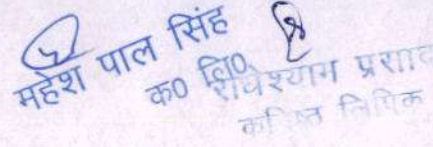 महेश पाल सिंह
क0 लि0
राधेश्याम प्रसाद
कनिष्ठ लिपिक